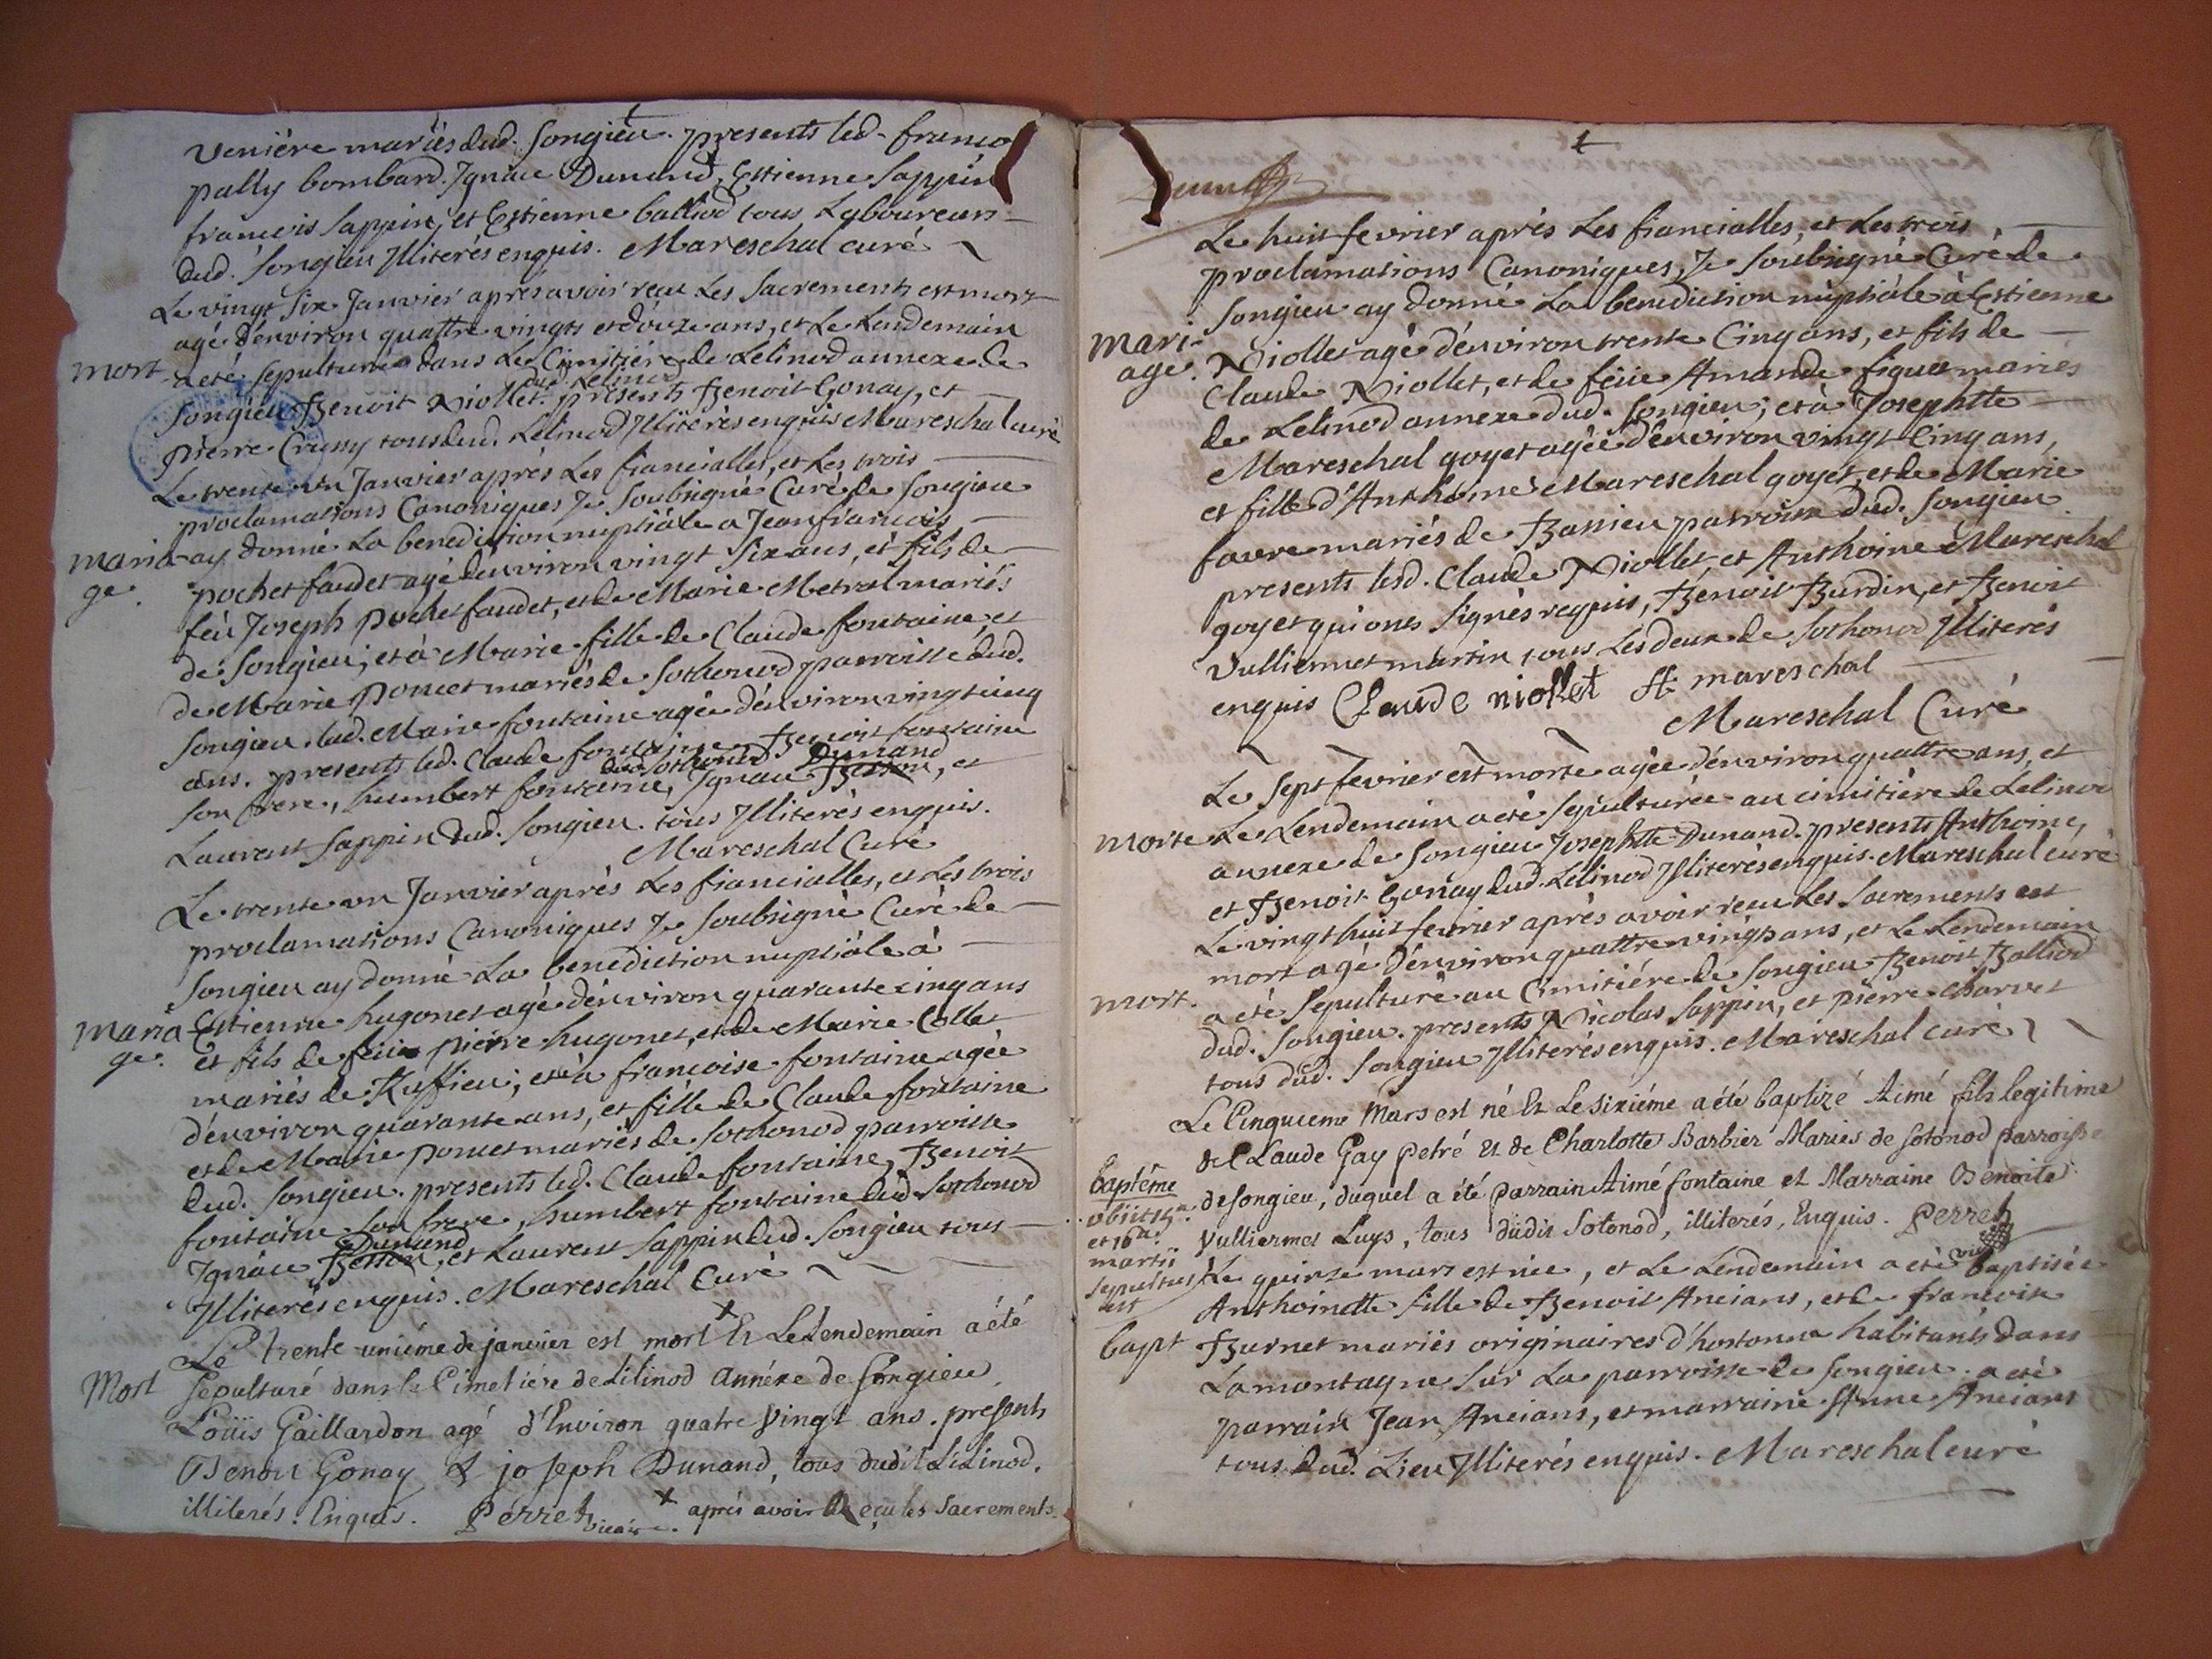 veniére mariés dud. Songieu. presents led. francois
pally bombard. Ignace Dunand, Estienne Sappin
francois Sappin, et Estienne balliod tous Laboureurs
dud. Songieu Illiterés enquis. Mareschal curé
Le vingt six Janvier aprés avoir reçu Les Sacrements est mort
agé d'environ quattre vingts et douze ans, et Le Lendemain
mort a eté sepulturé dans Le Cimitiére de Lelinod annexe de
Songieu Benoit Niollet dud. Lelinod. presents Benoit Gonay, et
pierre Cruny tous dud. Lelinod Illiterés enquis Mareschal curé
Le trente un Janvier aprés Les fiancialles, et Les trois
proclamations Canoniques Je Soubsigné Curé de Songieu
maria- ay donné La benediction nuptiále a Jean francois
ge. pochet faudet agé d'environ vingt Six ans, et fils de
feu Joseph pochet faudet, et de Marie Metral mariés
de Songieu; et à Marie fille de Claude fontaine et
de Marie poncet mariés de Sothonod parroisse dud.
Songieu. lad. Marie fontaine agée d'environ vingt cinq
ans. presents led. Claude fontaine, Benoit fontaine
son frere, humbert fontaine dud. Sothonod, Ignace Besson Dunand, et
Laurent Sappin dud. Songieu. tous Illiterés enquis.
Mareschal Curé
Le trente un Janvier aprés Les fiancialles, et Les trois
proclamations Canoniques Je Soubsigné Curé de
Songieu ay donné La benediction nuptiále à
maria Estienne hugonet agé d'environ quarante cinq ans
ge. et fils de feüe pierre hugonet, et de Marie Collet
mariés de Ruffieu; et à francoise fontaine agée
d'environ quarante ans, et fille de Claude fontaine
et de Marie poncet mariés de Sothonod parroisse
dud. Songieu. presents led. Claude fontaine, Benoit
fontaine son frere, humbert fontaine dud. Sothonod
Ignace Besson Dunand, et Laurent Sappin dud. Songieu tous
Illiterés enquis. Mareschal Curé
Le trente-uniéme de janvier est mort x Et Le Lendemain a été
Mort Sepulturé dans le Cimetiére de Lilinod Annéxe de Songieu
Loüis Gaillardon agé d'Environ quatre vingt ans. presents
Benoit Gonay & joseph Dunand, tous dudit Lilinod.
illiterés. Enquis. Perret vicaire. x aprés avoir Reçu les Sacrements.
4
Le huit fevrier aprés Les fiancialles, et Les trois
proclamations Canoniques, Je Soubsigné Curé de
Songieu ay donné La benediction nuptiále à Estienne
mari- Niollet agé d'environ trente Cinq ans, et fils de
age. Claude Niollet, et de feüe Amande figue mariés
de Lelinod annexe dud. Songieu; et à Josephtte
Mareschal goyet agée d'environ vingt Cinq ans,
et fille d'Anthoine Mareschal goyet, et de Marie
favre mariés de Bassieu parroisse dud. Songieu
presents lesd. Claude Niollet, et Anthoine Mareschal
goyet qui ont signés requis, Benoit Burdin, et Benoit
Vulliermet martin tous Les deux de Sothonod Illiterés
enquis Claude niollet A. mareschal
Mareschal Curé
Le Sept fevrier est morte agée d'environ quattre ans, et
morte Le Lendemain a eté sepulturée au cimitiére de Lelinod
annexe de Songieu Josephtte Dunand. presents Anthoine,
et Benoit Gonay dud. Lelinod Illiterés enquis. Mareschal curé
Le vingt huit fevrier aprés avoir reçu Les Sacrements est
mort agé d'environ quattre vingts ans, et Le Lendemain
mort. a eté Sepulturé au Cimitiére de Songieu Benoit Balliod
dud. Songieu. presents Nicolas Sappin, et pierre Charvet
tous dud. Songieu Illiterés enquis. Mareschal curé
Le Cinquieme Mars est né Et Le Sixiéme a été baptizé Aimé fils legitime
de Claude Gay petré Et de Charlotte Barbier Mariés de Sotonod parroisse
baptême de Songieu, duquel a été Parrain Aimé fontaine et Marraine Benoite
obiit 15a. Vulliermet Luys, tous dudit Sotonod, illiterés, Enquis. Perret
et 16a. martii sepultus est
vic
Le quinze mars est née, et Le Lendemain a eté baptisée
Anthoinette fille de Benoit Ancians, et de francoise
bapt Burnet mariés originaires d'hostonna habitants dans
La montagne sur La parroisse de Songieu. a eté
parrain Jean Ancians, et marraine Anne Ancians
tous dud. Lieu Illiterés enquis. Mareschal curé